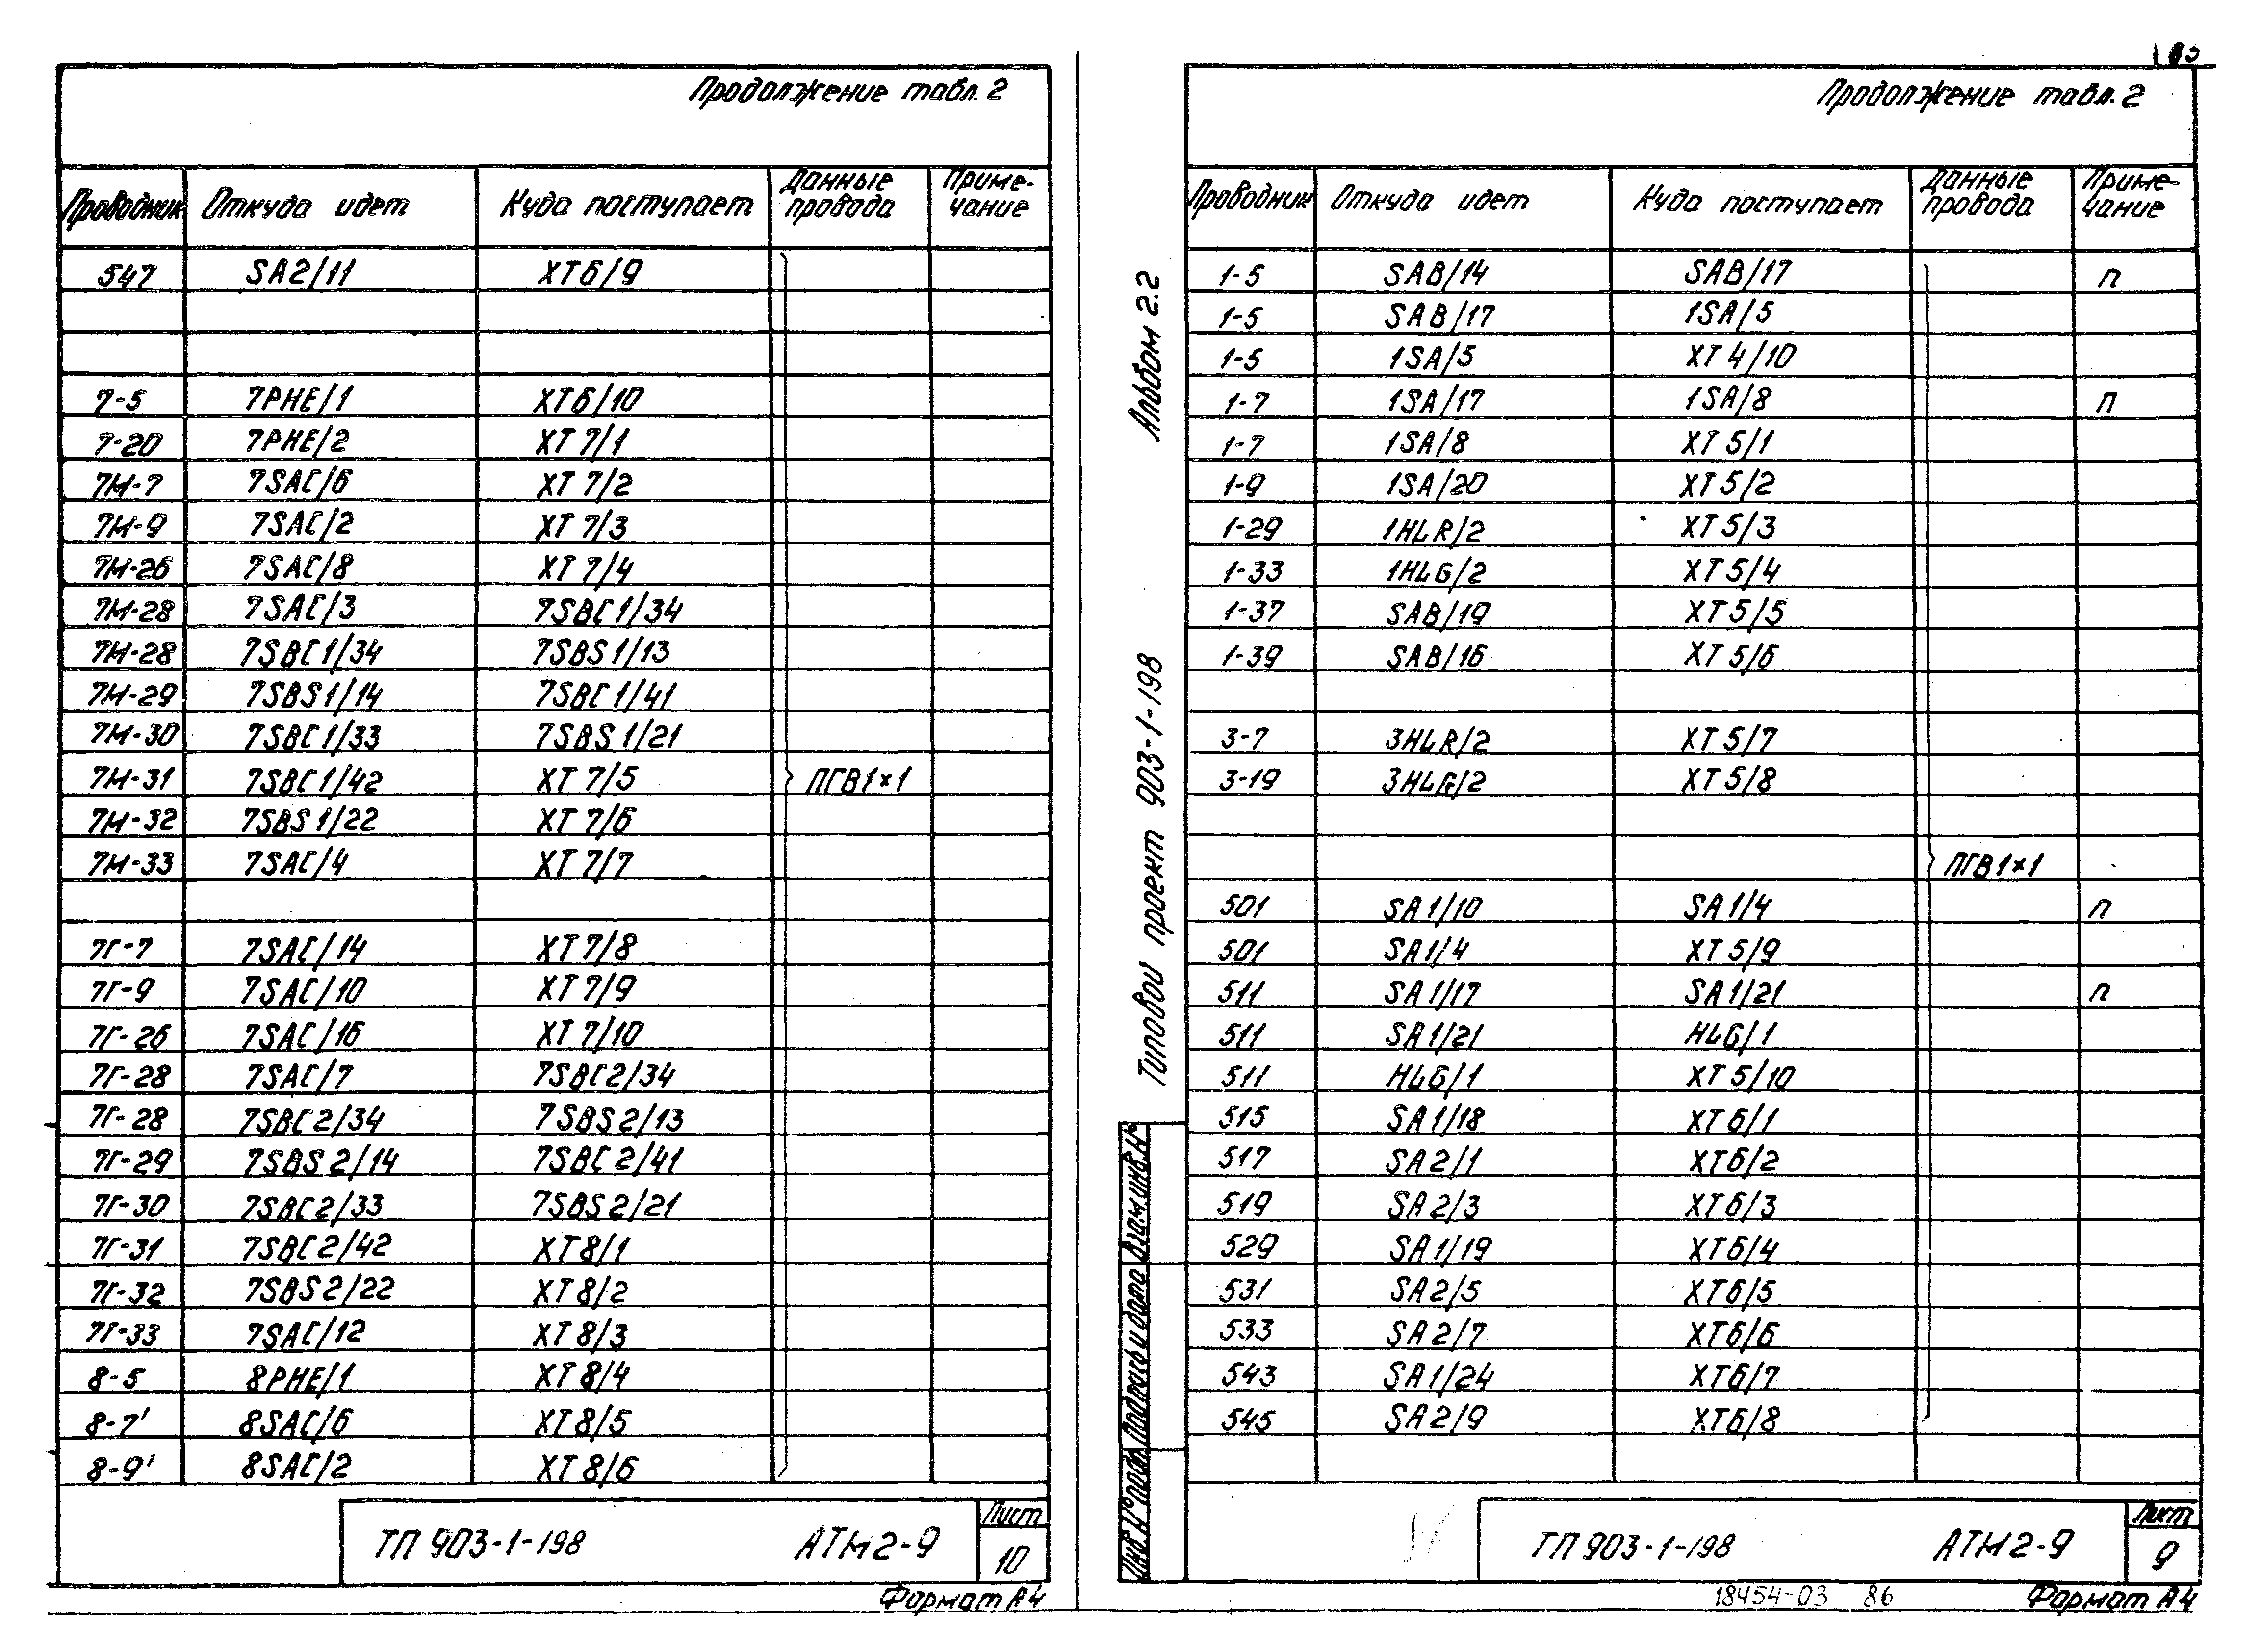 Продолжение табл. 2
Проводник Откуда идет Куда поступает Данные провода Примечание
547 SA2/11 XT6/9
7-5 7PHE/1 XT6/10
7-20 7PHE/2 XT7/1
7М-7 7SAC/6 XT7/2
7М-9 7SAC/2 XT7/3
7М-26 7SAC/8 XT7/4
7М-28 7SAC/3 7SBC1/34
7М-28 7SBC1/34 7SBS1/13
7М-29 7SBS1/14 7SBC1/41
7М-30 7SBC1/33 7SBS1/21
7М-31 7SBC1/42 XT7/5 ПГВ1×1
7М-32 7SBS1/22 XT7/6
7М-33 7SAC/4 XT7/7
7Г-7 7SAC/14 XT7/8
7Г-9 7SAC/10 XT7/9
7Г-26 7SAC/16 XT7/10
7Г-28 7SAC/7 7SBC2/34
7Г-28 7SBC2/34 7SBS2/13
7Г-29 7SBS2/14 7SBC2/41
7Г-30 7SBC2/33 7SBS2/21
7Г-31 7SBC2/42 XT8/1
7Г-32 7SBS2/22 XT8/2
7Г-33 7SAC/12 XT8/3
8-5 8PHE/1 XT8/4
8-7' 8SAC/6 XT8/5
8-9' 8SAC/2 XT8/6
ТП 903-1-198 АТМ2-9 Лист 10
Формат А4
Продолжение табл. 2
Проводник Откуда идет Куда поступает Данные провода Примечание
1-5 SAB/14 SAB/17 п
1-5 SAB/17 1SA/5
1-5 1SA/5 XT4/10
1-7 1SA/17 1SA/8 п
1-7 1SA/8 XT5/1
1-9 1SA/20 XT5/2
1-29 1HLR/2 XT5/3
1-33 1HLG/2 XT5/4
1-37 SAB/19 XT5/5
1-39 SAB/16 XT5/6
3-7 3HLR/2 XT5/7
3-19 3HLG/2 XT5/8
ПГВ1×1
501 SA1/10 SA1/4 п
501 SA1/4 XT5/9
511 SA1/17 SA1/21 п
511 SA1/21 HLG/1
511 HLG/1 XT5/10
515 SA1/18 XT6/1
517 SA2/1 XT6/2
519 SA2/3 XT6/3
529 SA1/19 XT6/4
531 SA2/5 XT6/5
533 SA2/7 XT6/6
543 SA1/24 XT6/7
545 SA2/9 XT6/8
ТП 903-1-198 АТМ2-9 Лист 9
18454-03 86
Формат А4
Типовой проект 903-1-198 Альбом 2.2
Инв. № подл. Подпись и дата Взам. инв. №